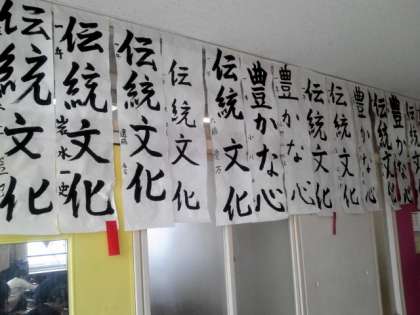 伝統文化
伝統文化
伝統文化
伝統文化
伝統文化
豊かな心
豊かな心
伝統文化
伝統文化
豊かな心
伝統文化
豊かな心
伝統